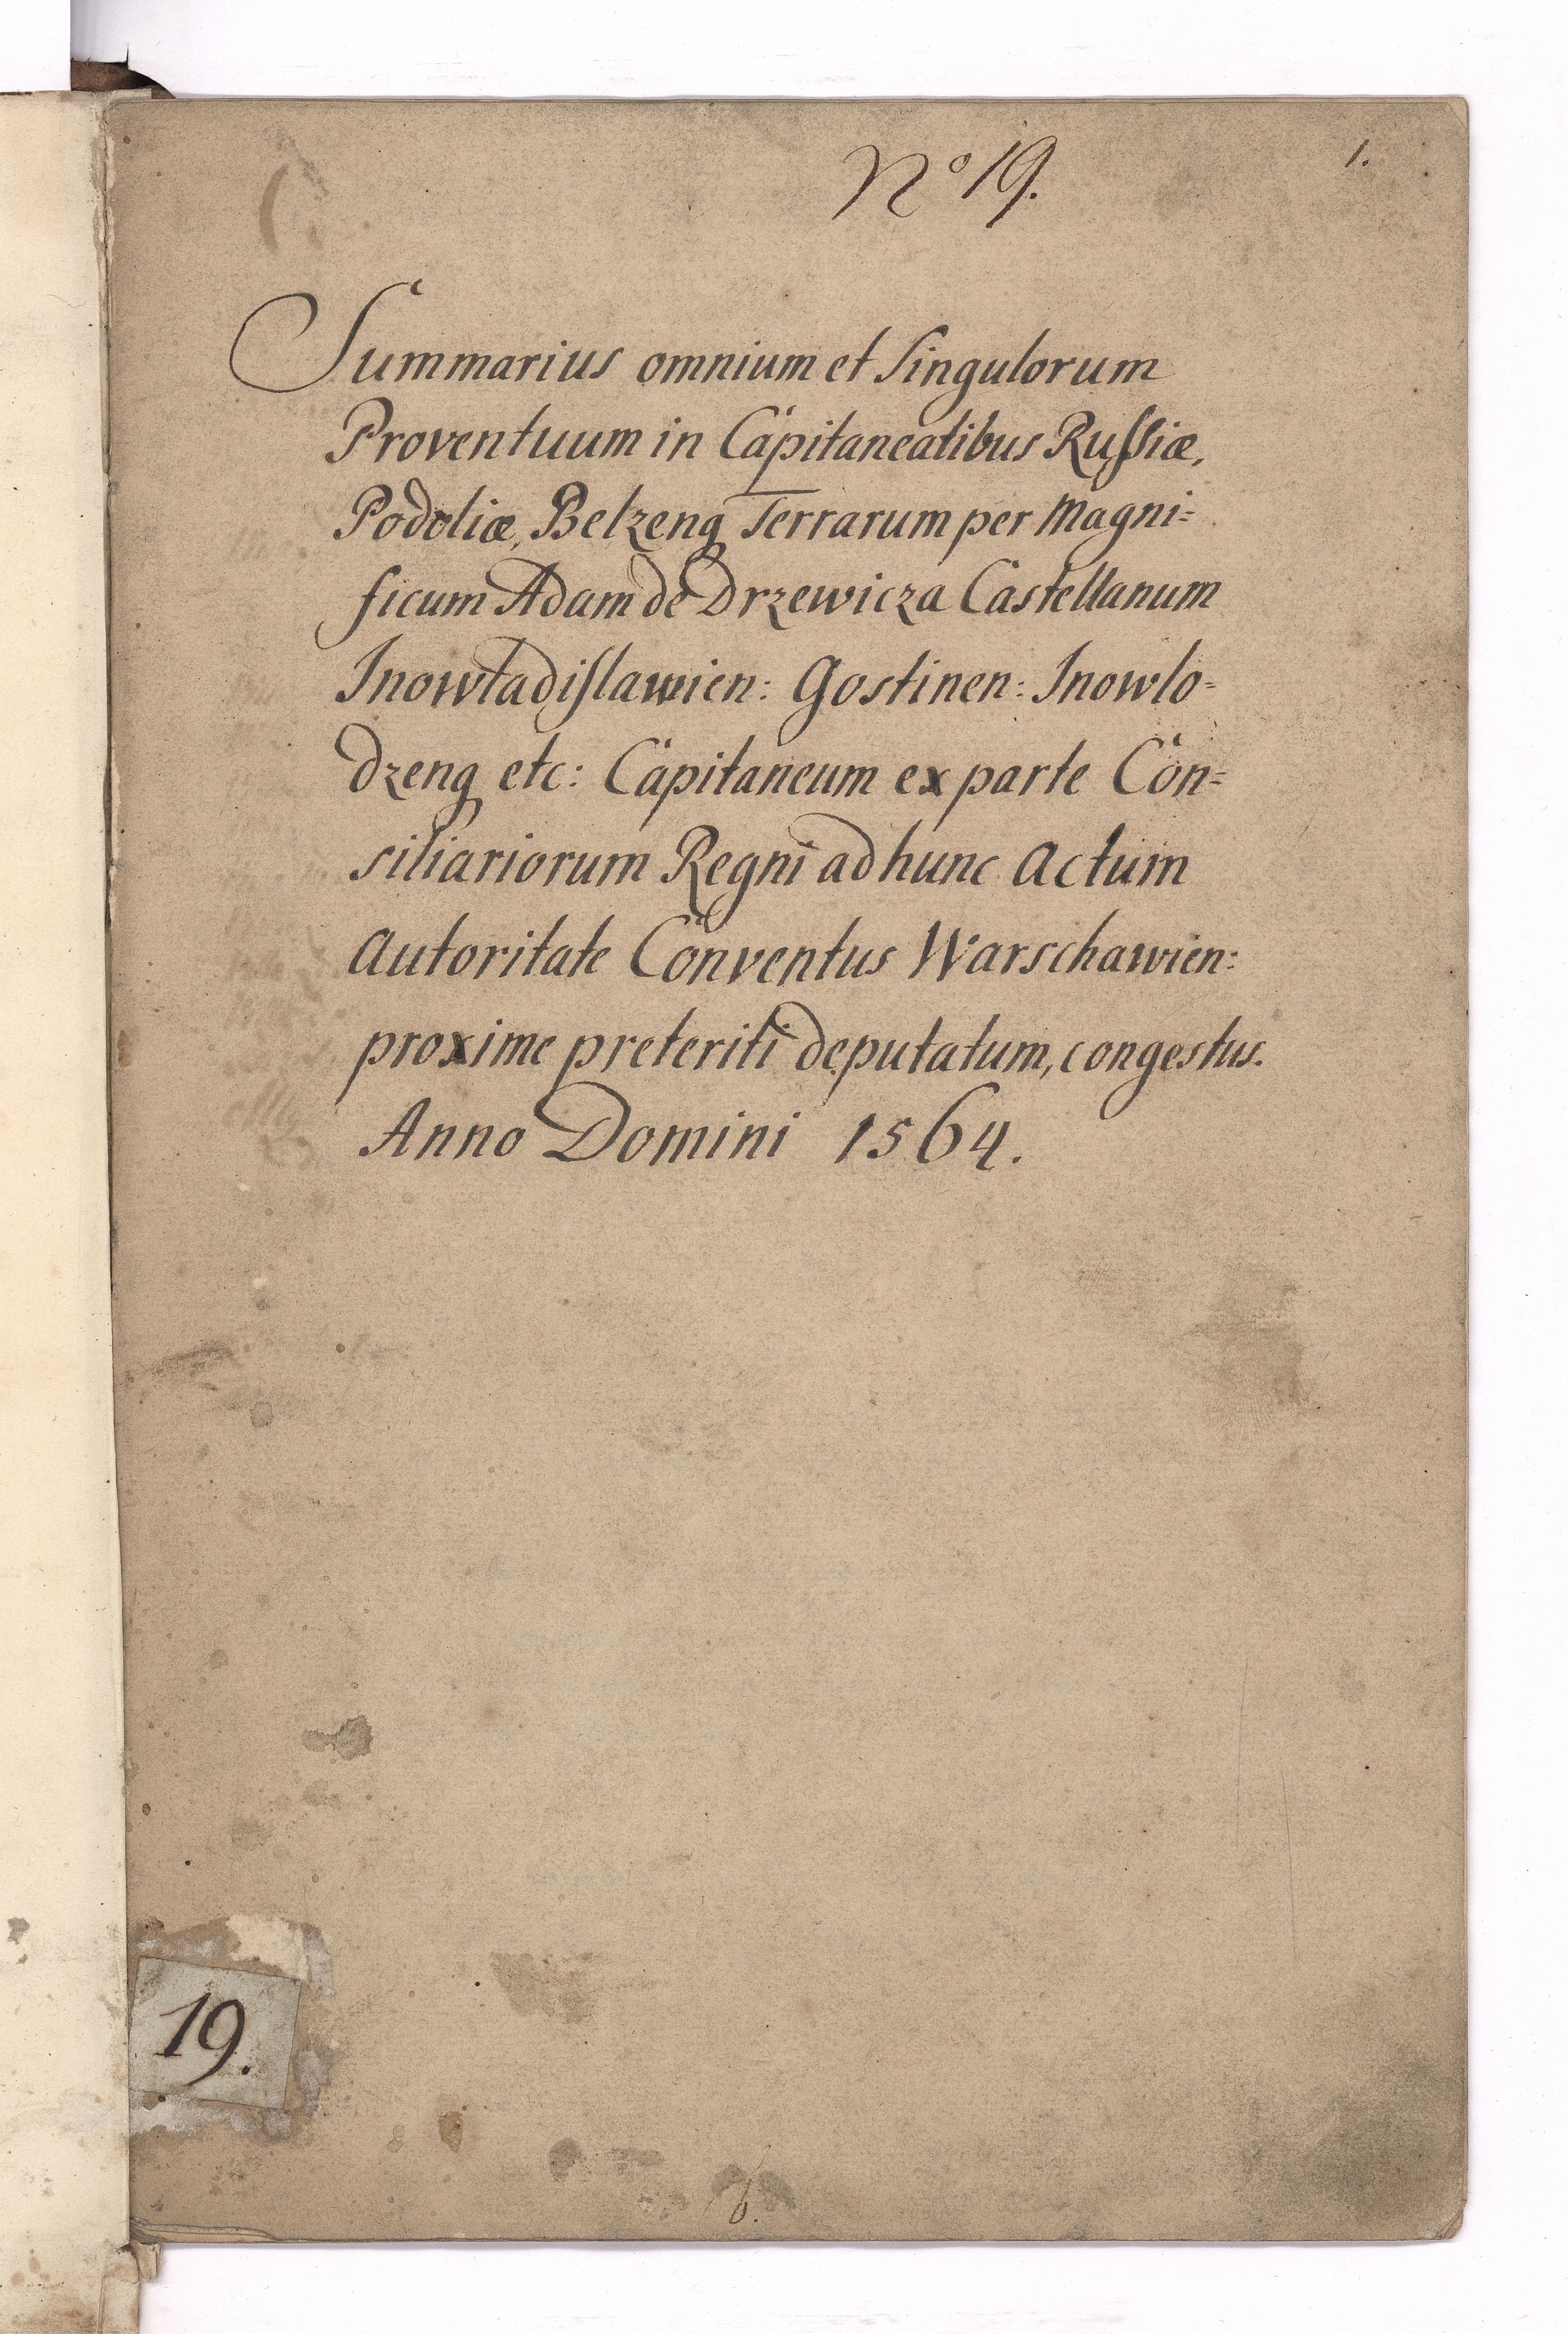 No 19.
1.
Summarius omnium et Singulorum
Proventuum in Capitaneatibus Russiæ,
Podoliæ, Belzenq Terrarum per Magni=
ficum Adam de Drzewicza Castellanum
Inowladislawien: Gostinen: Inowlo=
dzenq etc: Capitaneum ex parte Con=
siliariorum Regni ad hunc Actum
Autoritate Conventus Warschawien:
proxime preteriti deputatum, congestus.
Anno Domini 1564.
19.